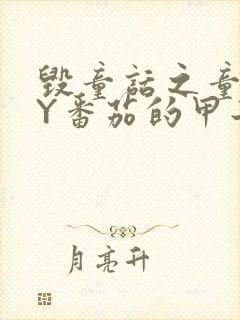 毁童话之童
Y番茄的甲
月亮升